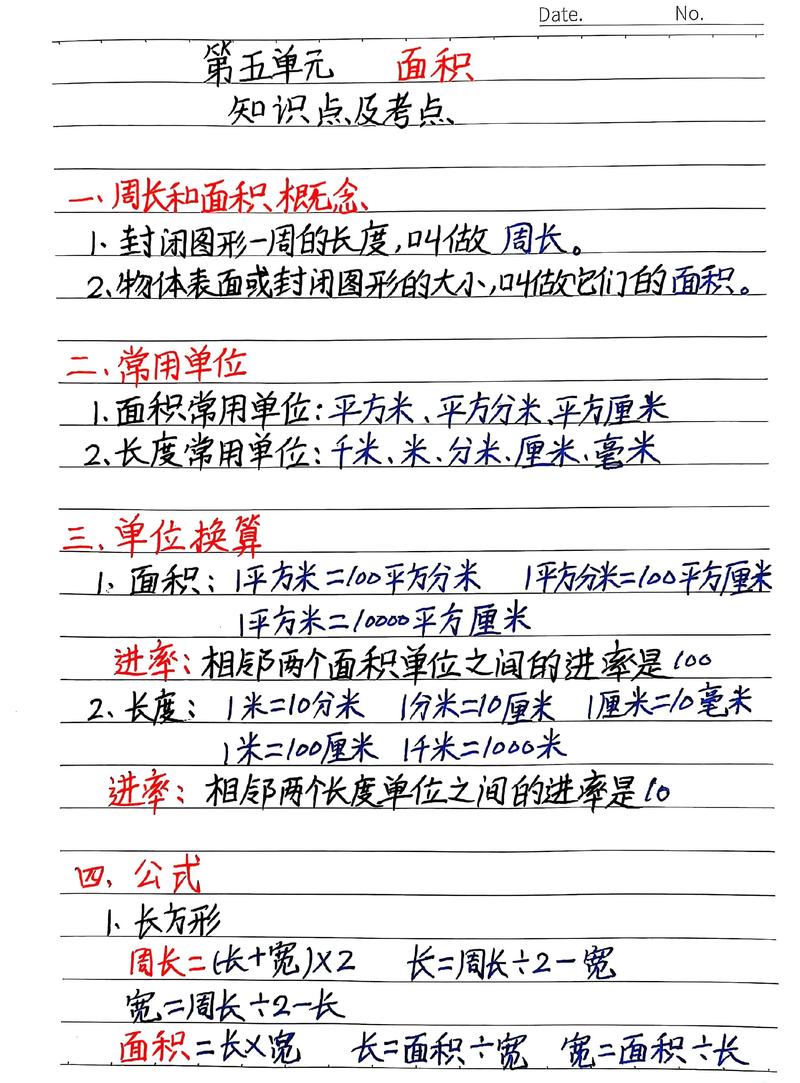 Date. No.
第五单元 面积
知识点及考点
一、周长和面积概念
1. 封闭图形一周的长度,叫做 周长。
2、物体表面或封闭图形的大小,叫做它们的面积。
二、常用单位
1.面积常用单位:平方米、平方分米、平方厘米
2、长度常用单位:千米、米、分米、厘米、毫米
三、单位换算
1. 面积: 1平方米=100平方分米 1平方分米=100平方厘米
1平方米=10000平方厘米
进率:相邻两个面积单位之间的进率是100
2、长度: 1米=10分米 1分米=10厘米 1厘米=10毫米
1米=100厘米 1千米=1000米
进率: 相邻两个长度单位之间的进率是10
四、公式
1. 长方形
周长=(长+宽)×2 长=周长÷2-宽
宽=周长÷2-长
面积=长×宽 长=面积÷宽 宽=面积÷长